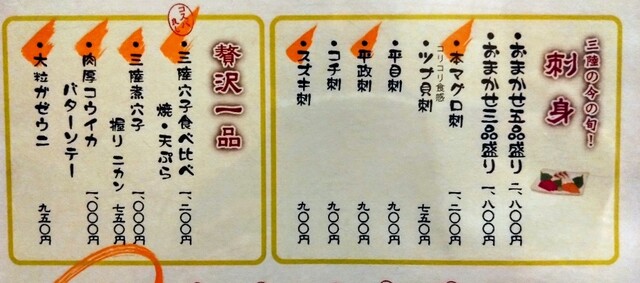 三陸の今の旬!
刺身
・おまかせ五品盛り 二、八〇〇円
・おまかせ三品盛り 一、八〇〇円
・本マグロ刺 一、二〇〇円
コリコリ食感
・ツブ貝刺 七五〇円
・平目刺 九〇〇円
・平政刺 九〇〇円
・コチ刺 九〇〇円
・スズキ刺 九〇〇円
贅沢一品
コスパ良し
・三陸穴子食べ比べ
焼・天ぷら 一、二〇〇円
・三陸煮穴子 一、〇〇〇円
握り 二カン 七五〇円
・肉厚コウイカ
バターソテー 一、〇〇〇円
・大粒かぜウニ 九五〇円